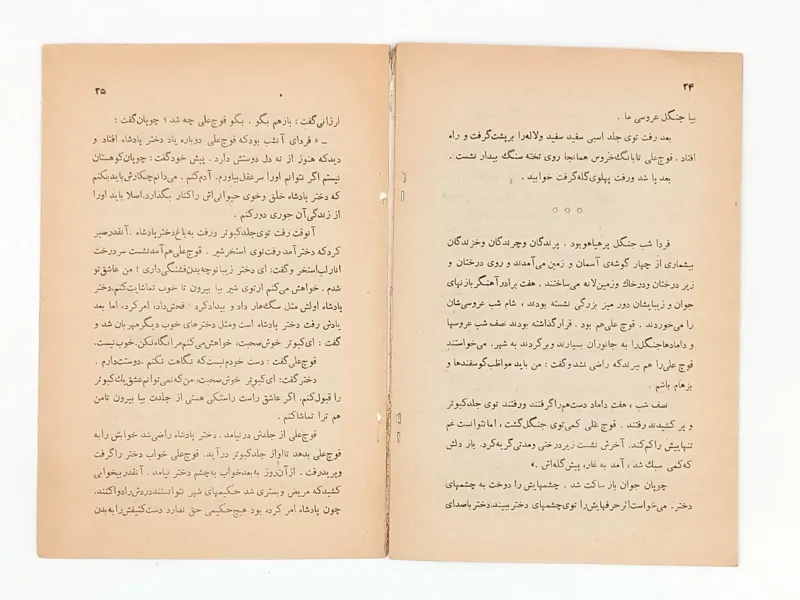 ۲۴
بیا جنگل عروسی ما .
بعد رفت توی جلد اسبی سفید سفید ولاله‌را برپشت گرفت و راه
افتاد . قوچ‌علی تا بانگ خروس همانجا روی تخته سنگ بیدار نشست .
بعد پا شد ورفت پهلوی گله گرفت خوابید .
☆ ☆ ☆
فردا شب جنگل پرهیاهو بود . پرندگان وچرندگان وخزندگان
بیشماری از چهار گوشه‌ی آسمان و زمین می‌آمدند و روی درختان و
زیر درختان ودرخاک وزمین‌لانه می‌ساختند . هفت برادر آهنگر بازنهای
جوان و زیبایشان دور میز بزرگی نشسته بودند ، شام شب عروسی‌شان
را می‌خوردند . قوچ علی‌هم بود . قرار گذاشته بودند نصف شب عروسها
و دامادها جنگل‌را به جانوران بسپارند و برگردند به شهر. می‌خواستند
قوچ علی‌را هم ببرند که راضی نشد و گفت : من باید مواظب گوسفندها و
بزهام باشم .
نصف شب ، هفت داماد دست هم‌را گرفتند ورفتند توی جلد کبوتر
و پر کشیدند رفتند . قوچ علی کمی توی جنگل گشت ، اما نتوانست غم
تنهاییش را کم کند. آخرش نشست زیر درختی ومدتی گریه کرد. بار دلش
که کمی سبک شد ، آمد به غار، پیش گله‌اش .»
چوپان جوان باز ساکت شد . چشمهایش را دوخت به چشمهای
دختر. می‌خواست اثر حرفهایش را توی چشمهای دختر ببیند. دختر با صدای
۲۵
ارزانی گفت : بازهم بگو . بگو قوچ‌علی چه شد ؟ چوپان گفت :
ـ « فردای آنشب بود که قوچ‌علی دوباره یاد دختر پادشاه افتاد و
دید که هنوز از ته دل دوستش دارد . پیش خود گفت : چوپان کوهستان
نیستم اگر نتوانم اورا سرعقل بیاورم. آدم کنم . می‌دانم چکارش باید بکنم
که دختر پادشاه خلق وخوی حیوانی‌اش را کنار بگذارد. اصلا باید اورا
از زندگی آن جوری دور کنم .
آنوقت رفت توی جلد کبوتر ورفت به باغ دختر پادشاه . آنقدر صبر
کرد که دختر آمد رفت توی استخر شیر . قوچ‌علی هم آمد نشست سر درخت
انار لب استخر و گفت: ای دختر زیبا توچه بدن قشنگی داری ! من عاشق تو
شدم . خواهش می‌کنم از توی شیر بیا بیرون تا خوب تماشایت کنم. دختر
پادشاه اولش مثل سگ هار داد و بیداد کرد . فحش داد، امر کرد، اما بعد
یادش رفت دختر پادشاه است ومثل دخترهای خوب دیگر مهربان شد و
گفت : ای کبوتر خوش صحبت، خواهش می‌کنم مرا نگاه نکن. خوب نیست.
قوچ‌علی گفت : دست خودم نیست که نگاهت نکنم . دوستت دارم .
دختر گفت: ای کبوتر خوش صحبت، من که نمی‌توانم عشق یک کبوتر
را قبول کنم. اگر عاشق راست راستکی هستی از جلدت بیا بیرون تا من
هم ترا تماشا کنم .
قوچ‌علی از جلدش درنیامد . دختر پادشاه راضی شد خوابش را به
قوچ‌علی بدهد تا او از جلد کبوتر درآید. قوچ‌علی خواب دختر را گرفت
وپرید رفت . از آن روز به بعد خواب به چشم دختر نیامد . آنقدر بیخوابی
کشید که مریض و بستری شد حکیمهای شهر نتوانستند دردش را دوا کنند.
چون پادشاه امر کرده بود هیچ حکیمی حق ندارد دست کثیفش را به بدن